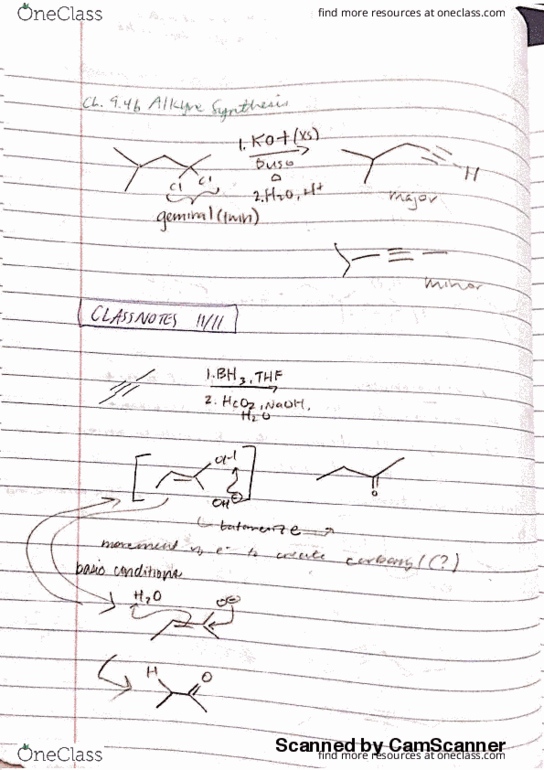 OneClass
find more resources at oneclass.com
Ch. 9.4b Alkyne Synthesis
1. KOt (xs)
DMSO
Δ
2. H2O, H+
Cl Cl
geminal (twin)
H
major
minor
CLASSNOTES 11/11
1. BH3, THF
2. H2O2, NaOH,
H2O
OH
OH⊖
O
tautomerize
movement of e- to create carbonyl (?)
basic conditions
H2O
O⊖
H
O
Scanned by CamScanner
OneClass
find more resources at oneclass.com